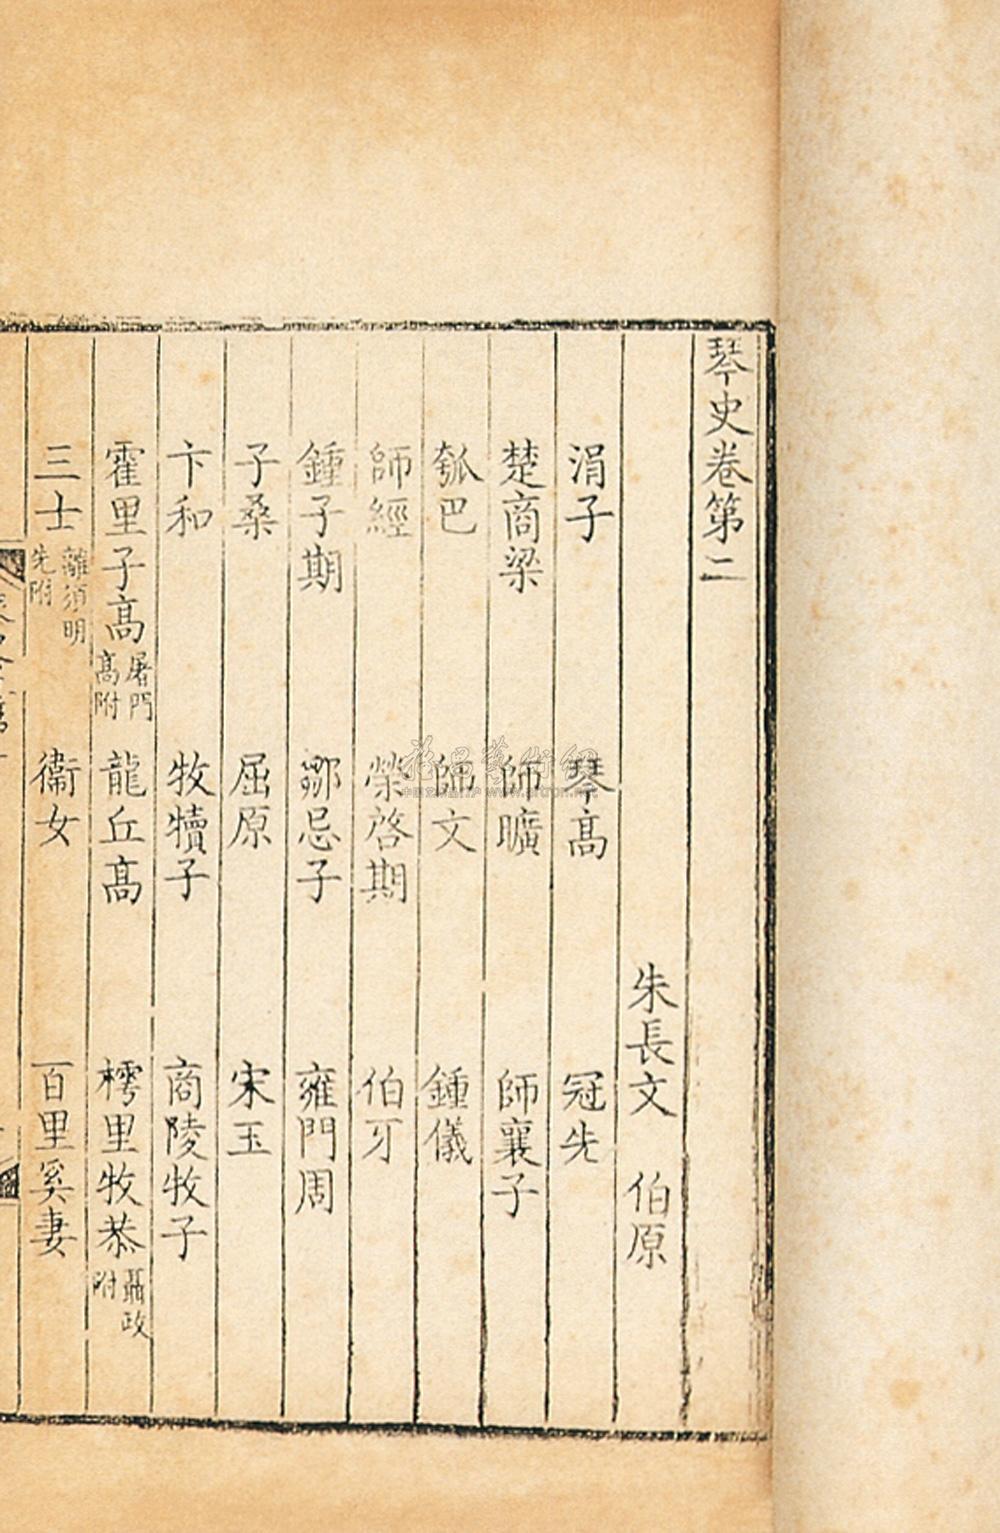 琴史卷第二
朱長文 伯原
涓子 琴高 冠先
楚商梁 師曠 師襄子
瓠巴 師文 鍾儀
師經 榮啓期 伯牙
鍾子期 鄒忌子 雍門周
子桑 屈原 宋玉
卞和 牧犢子 商陵牧子
霍里子高 屠門高附 龍丘高 樗里牧恭 聶政附
三士 離須明先附 衞女 百里奚妻